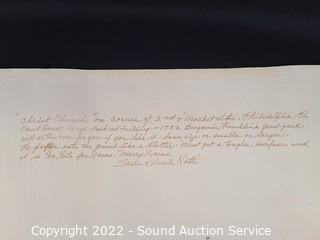 "Christ Church" on corner of 2nd & Market Sts. - Philadelphia, Pa.
Court House large darkred building - 1752 Benjamin Franklin's
will do this one for you if you like it. Same size or smaller or larger.
The paper eats the paint like a blotter. Must get a tougher surface and
it is too late for Xmas. Merry Xmas
Copyright 2022 - Sound Auction Service